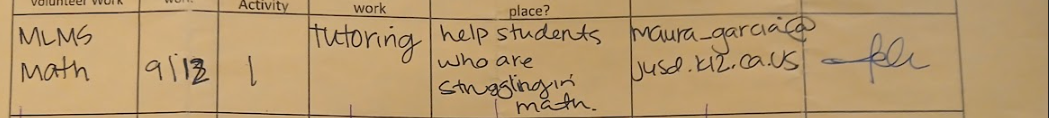 Volunteer Work Activity work place?
MLMS tutoring help students maura_garcia@
Math 9/13 1 who are jusd.k12.ca.us
struggling in
math.